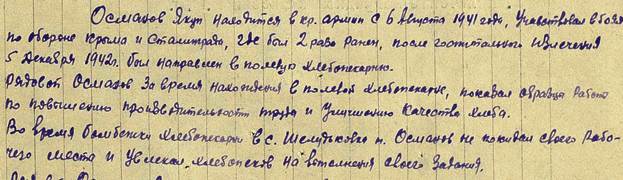 Османов Якуп находится в кр. армии с 6 Августа 1941 года, Участвовал в боях
по обороне Крыма и Сталинграда, где был 2 раза ранен, после госпитального Излечения
5 Декабря 1942г. был направлен в полевую хлебопекарню.
Рядовой Османов За время нахождения в полевой хлебопекарне, показал образцы Работы
по повышению производительности труда и Улучшению Качества хлеба.
Во время бомбежки хлебопекарни в с. Шелудковко т. Османов не покидал своего Рабо-
чего места и Увлекал хлебопеков на выполнения своего Задания.